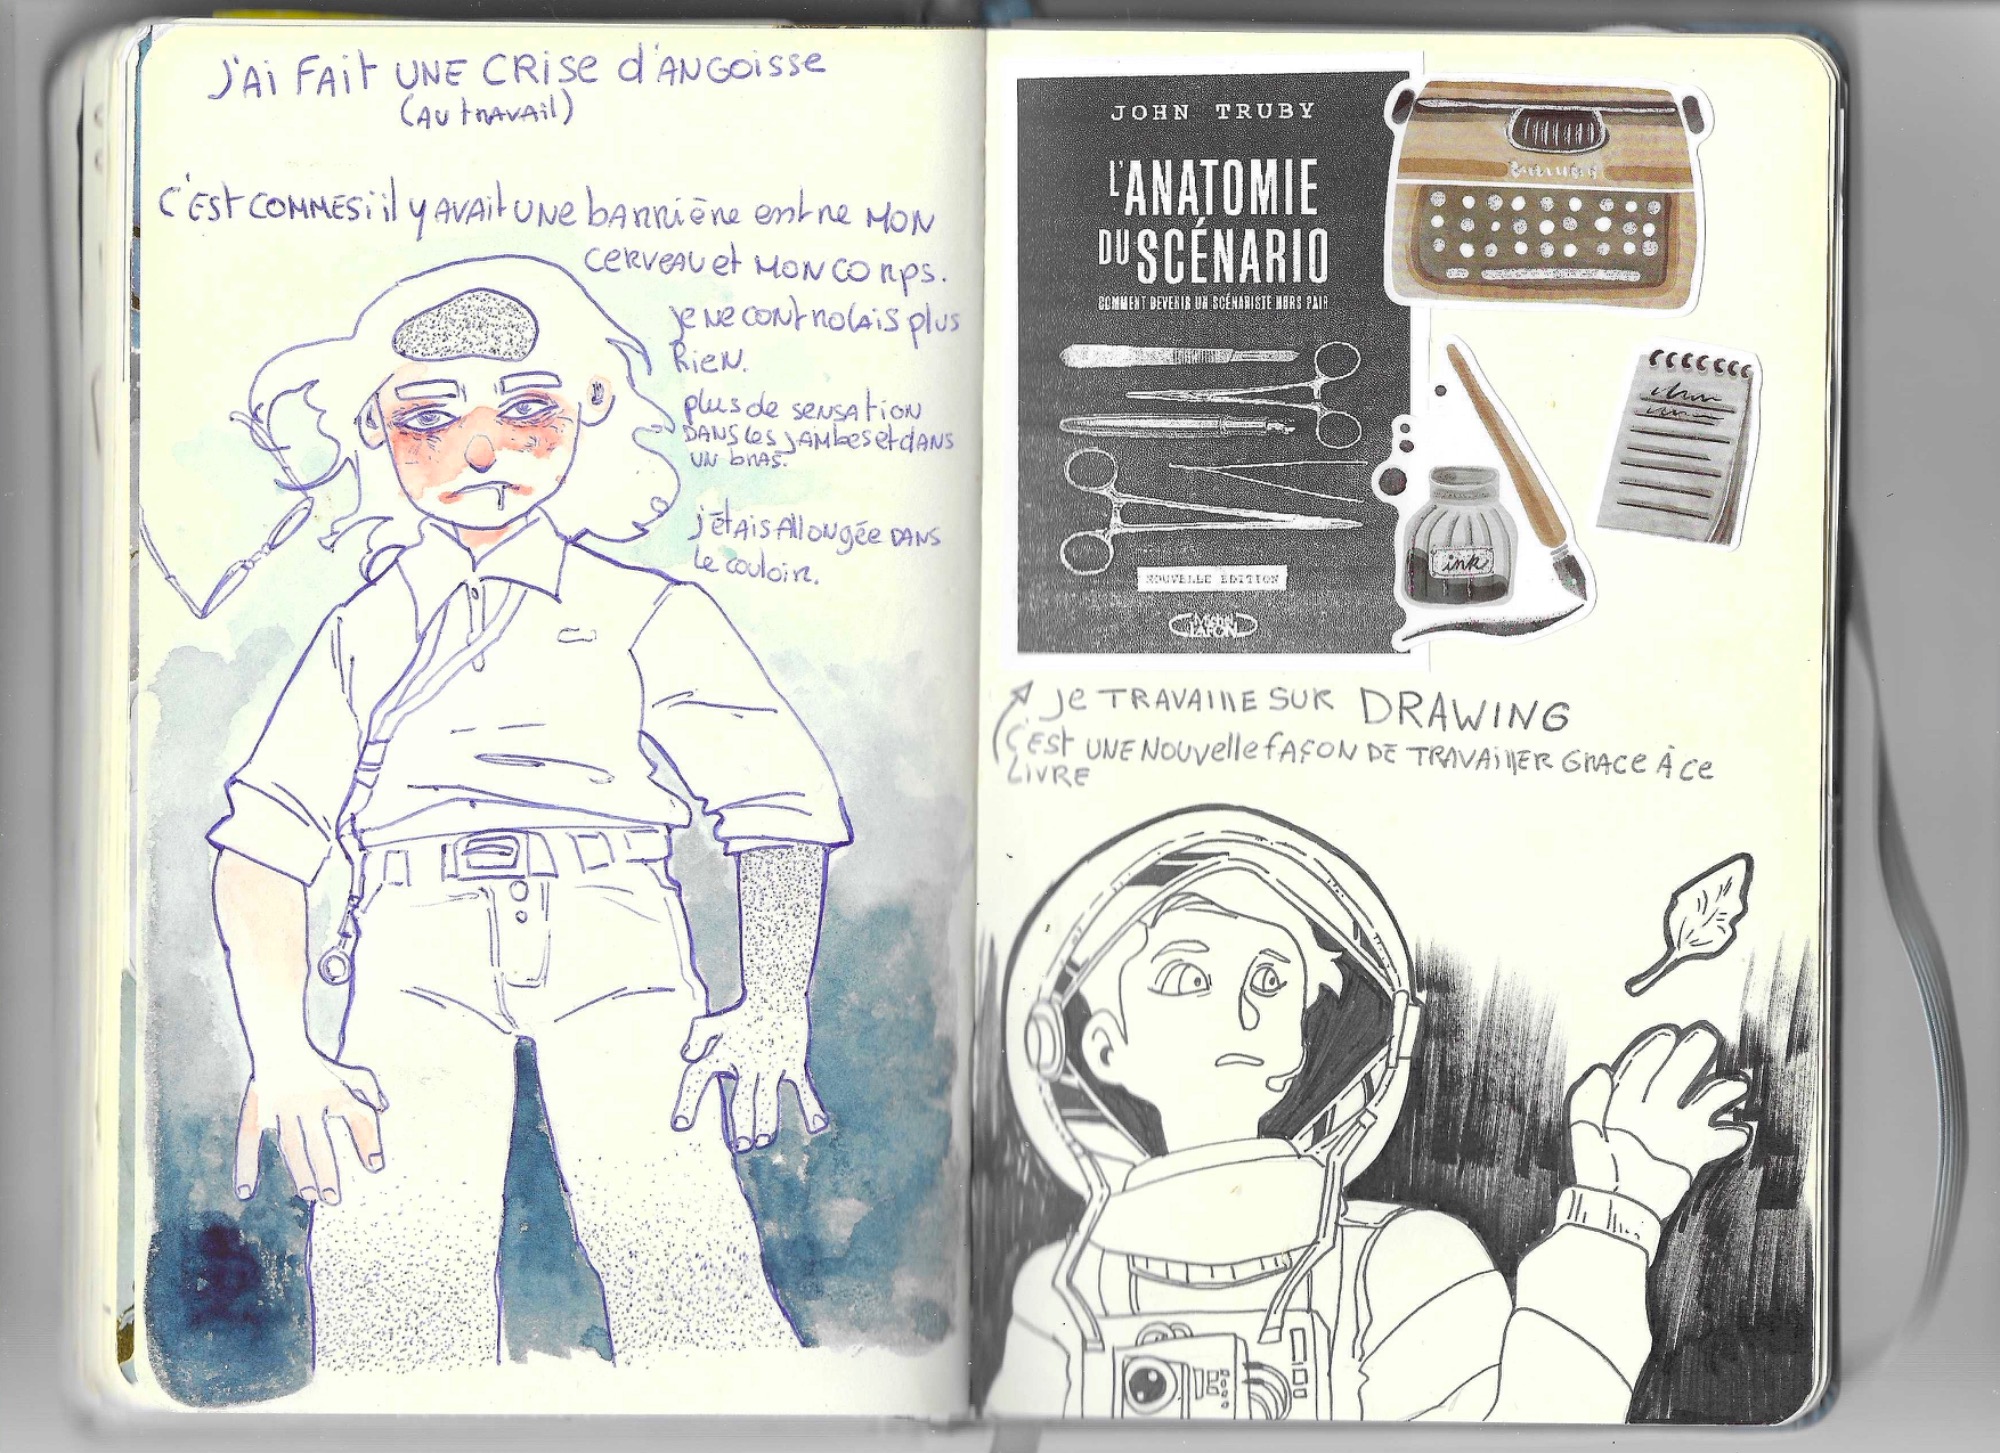 J'Ai FAit UNE CRisE d'ANGOISSE
(AU tRAVAil)
C'ESt COMME Si il y AVAit UNE bARRiÈRE entRe MON
CERVEAU et MON CORps.
je NE CONtRolAis plus
RiEN.
plus de SENSAtiON
DANS les jAmbes et dANS
UN bRAS.
j'étAis AllONgée DANS
le couloiR.
JOHN TRUBY
L'ANATOMIE
DU SCÉNARIO
COMMENT DEVENIR UN SCÉNARISTE HORS PAIR
NOUVELLE EDITION
Michel
LAFON
ink
Je TRAVAille SUR DRAWING
C'ESt UNE NOUVelle fAÇON DE TRAVAillER GRACE À CE
LIVRE